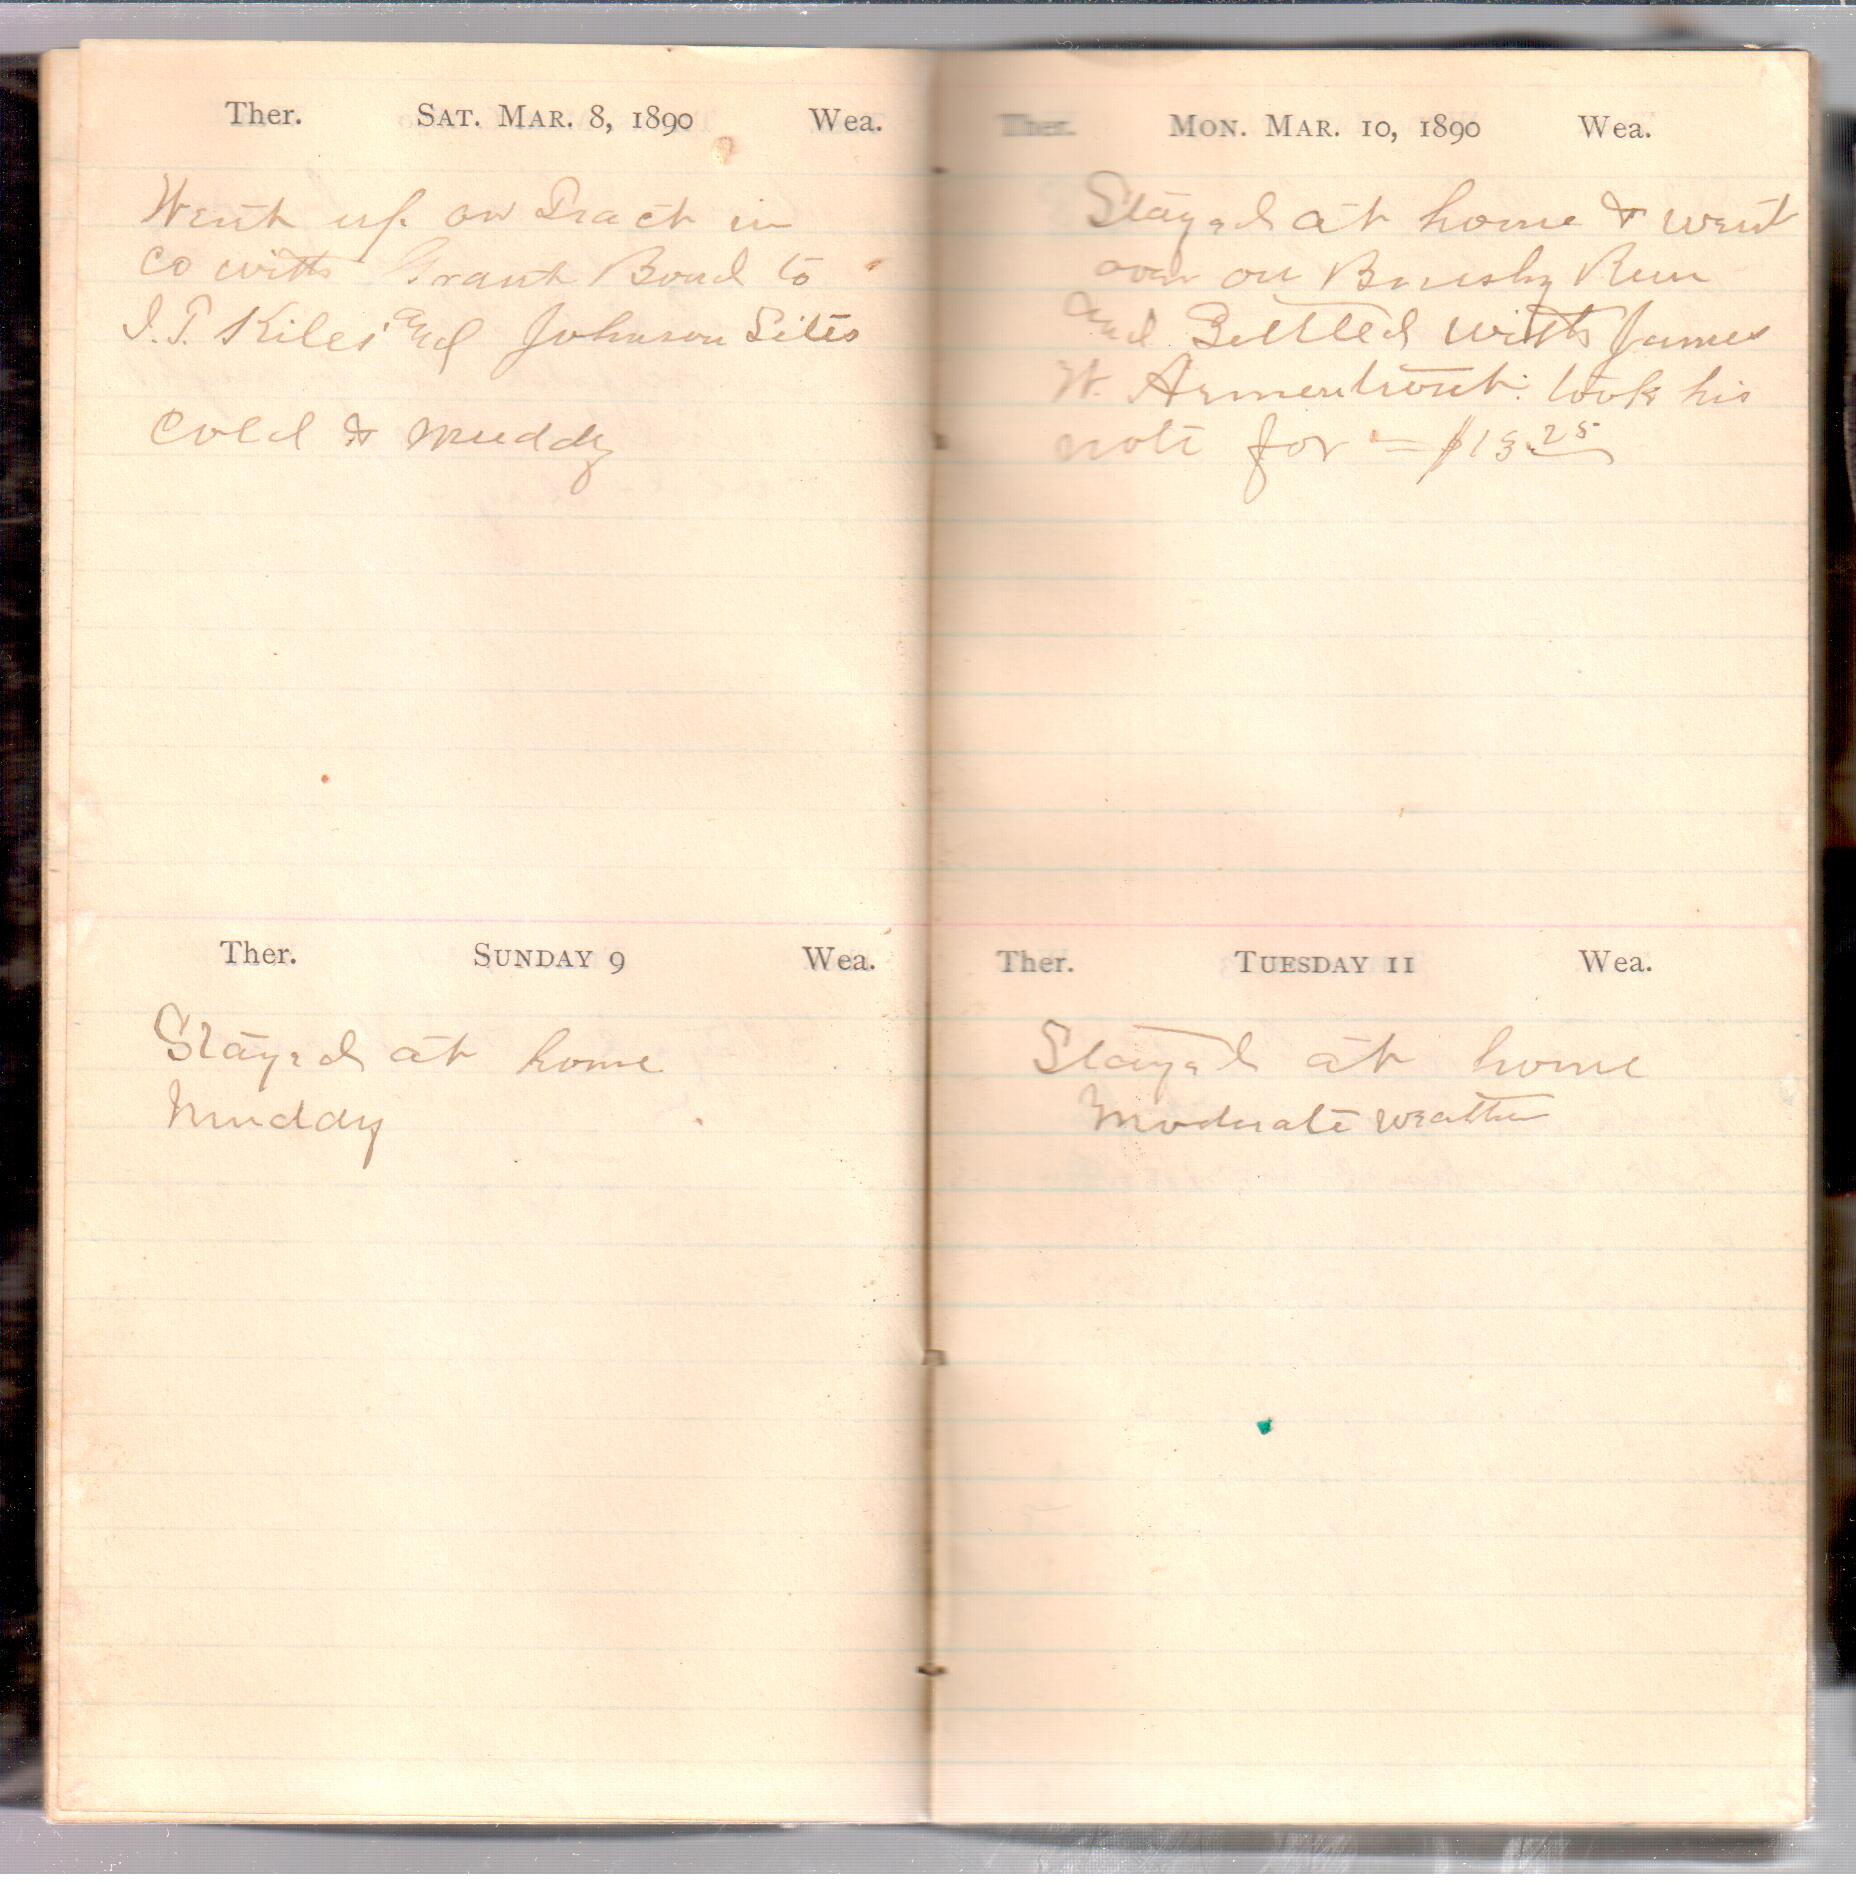 Ther. SAT. MAR. 8, 1890 Wea.
Went up on Tract in
co with Grant Bond to
I.T. Kiles' and Johnson Sites
Cold & Muddy
Ther. SUNDAY 9 Wea.
Stayed at home
Muddy
Ther. MON. MAR. 10, 1890 Wea.
Stayed at home & went
over on Brushy Run
and Settled with James
W. Armentrout: took his
note for = $13.25
Ther. TUESDAY 11 Wea.
Stayed at home
Moderate weather